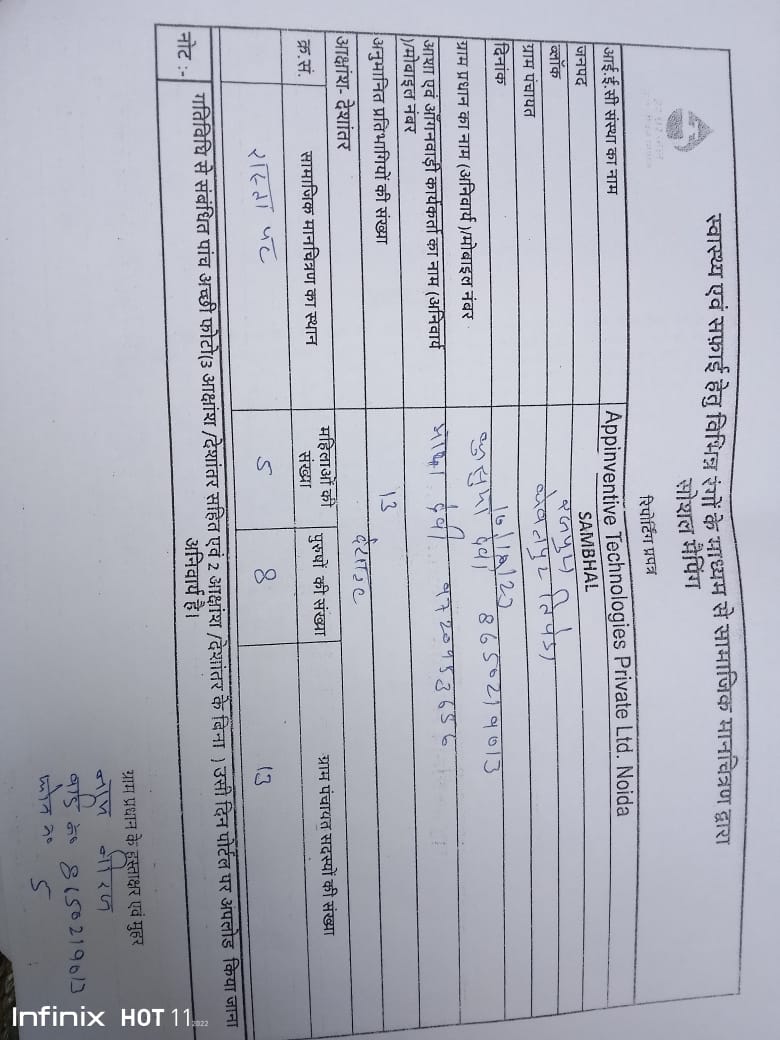 स्वास्थ्य एवं सफ़ाई हेतु विभिन्न रंगों के माध्यम से सामाजिक मानचित्रण द्वारा
सोशल मैपिंग
रिपोर्टिंग प्रपत्र
आई.ई.सी संस्था का नाम Appinventive Technologies Private Ltd. Noida
जनपद SAMBHAL
ब्लॉक
ग्राम पंचायत
दिनांक
ग्राम प्रधान का नाम (अनिवार्य )/मोबाइल नंबर देवी 8650219013
आशा एवं आँगनवाड़ी कार्यकर्ता का नाम (अनिवार्य
)/मोबाइल नंबर देवी
अनुमानित प्रतिभागियों की संख्या 13
आक्षांश- देशांतर
क्र.सं. सामाजिक मानचित्रण का स्थान महिलाओं की संख्या पुरुषों की संख्या ग्राम पंचायत सदस्यों की संख्या
रास्ता पर 5 8 13
नोट :- गतिविधि से संबंधित पांच अच्छी फोटो(3 आक्षांश /देशांतर सहित एवं 2 आक्षांश /देशांतर के बिना ) उसी दिन पोर्टल पर अपलोड किया जाना
अनिवार्य है।
ग्राम प्रधान के हस्ताक्षर एवं मुहर
8650219013
5
Infinix HOT 11 2022